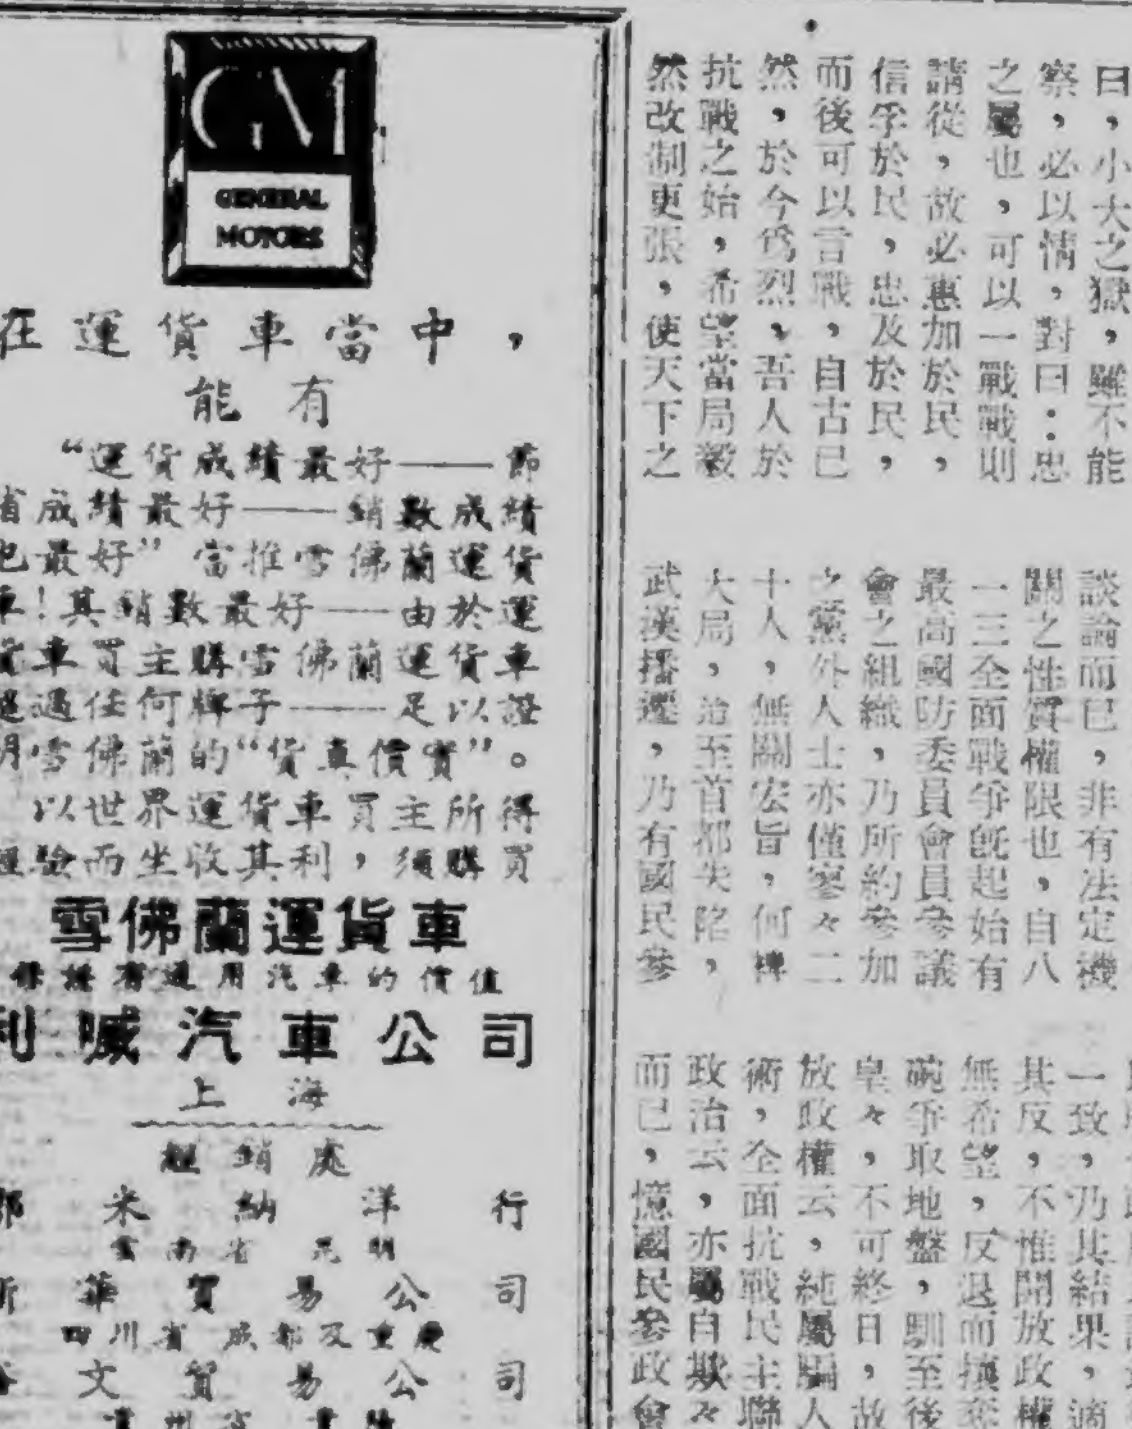 GM
GENERAL
MOTORS
在運貨車當中，
能有
“運貨成績最好——節
省成績最好——銷數成績
也最好”當推雪佛蘭運貨
車！其銷數最好——由於運
貨車買主購雪佛蘭運貨車
超過任何牌子——足以證
明雪佛蘭的“貨真價實”。
以世界運貨車買主所得
經驗而坐收其利，須購買
雪佛蘭運貨車
有通用汽車的價值
利喊汽車公司
上海
經銷處
米納洋行
雲南省昆明
新華貿易公司
四川省成都及重慶
文貿易公司
貴州省貴陽
曰，小大之獄，雖不能
察，必以情，對曰：忠
之屬也，可以一戰戰則
請從，故必惠加於民，
信孚於民，忠及於民，
而後可以言戰，自古已
然，於今爲烈，吾人於
抗戰之始，希望當局毅
然改制更張，使天下之
談論而已，非有法定機
關之性質權限也，自八
一三全面戰爭旣起始有
最高國防委員會員參議
會之組織，乃所約參加
之黨外人士亦僅寥々二
十人，無關宏旨，何裨
大局，治至首都失陷，
武漢播遷，乃有國民參
一致，乃其結果，適
其反，不惟開放政權
無希望，反退而攘奪
碗爭取地盤，馴至後
皇々，不可終日，故
放政權云，純屬騙人
術，全面抗戰民主聯
政治云，亦屬自欺々
而已，憶國民參政會